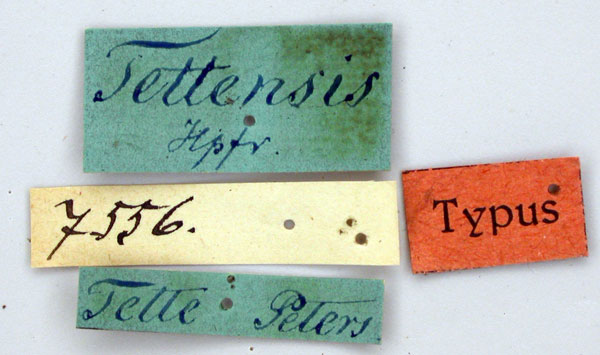 Tettensis
Hpfr.
7556.
Typus
Tette Peters